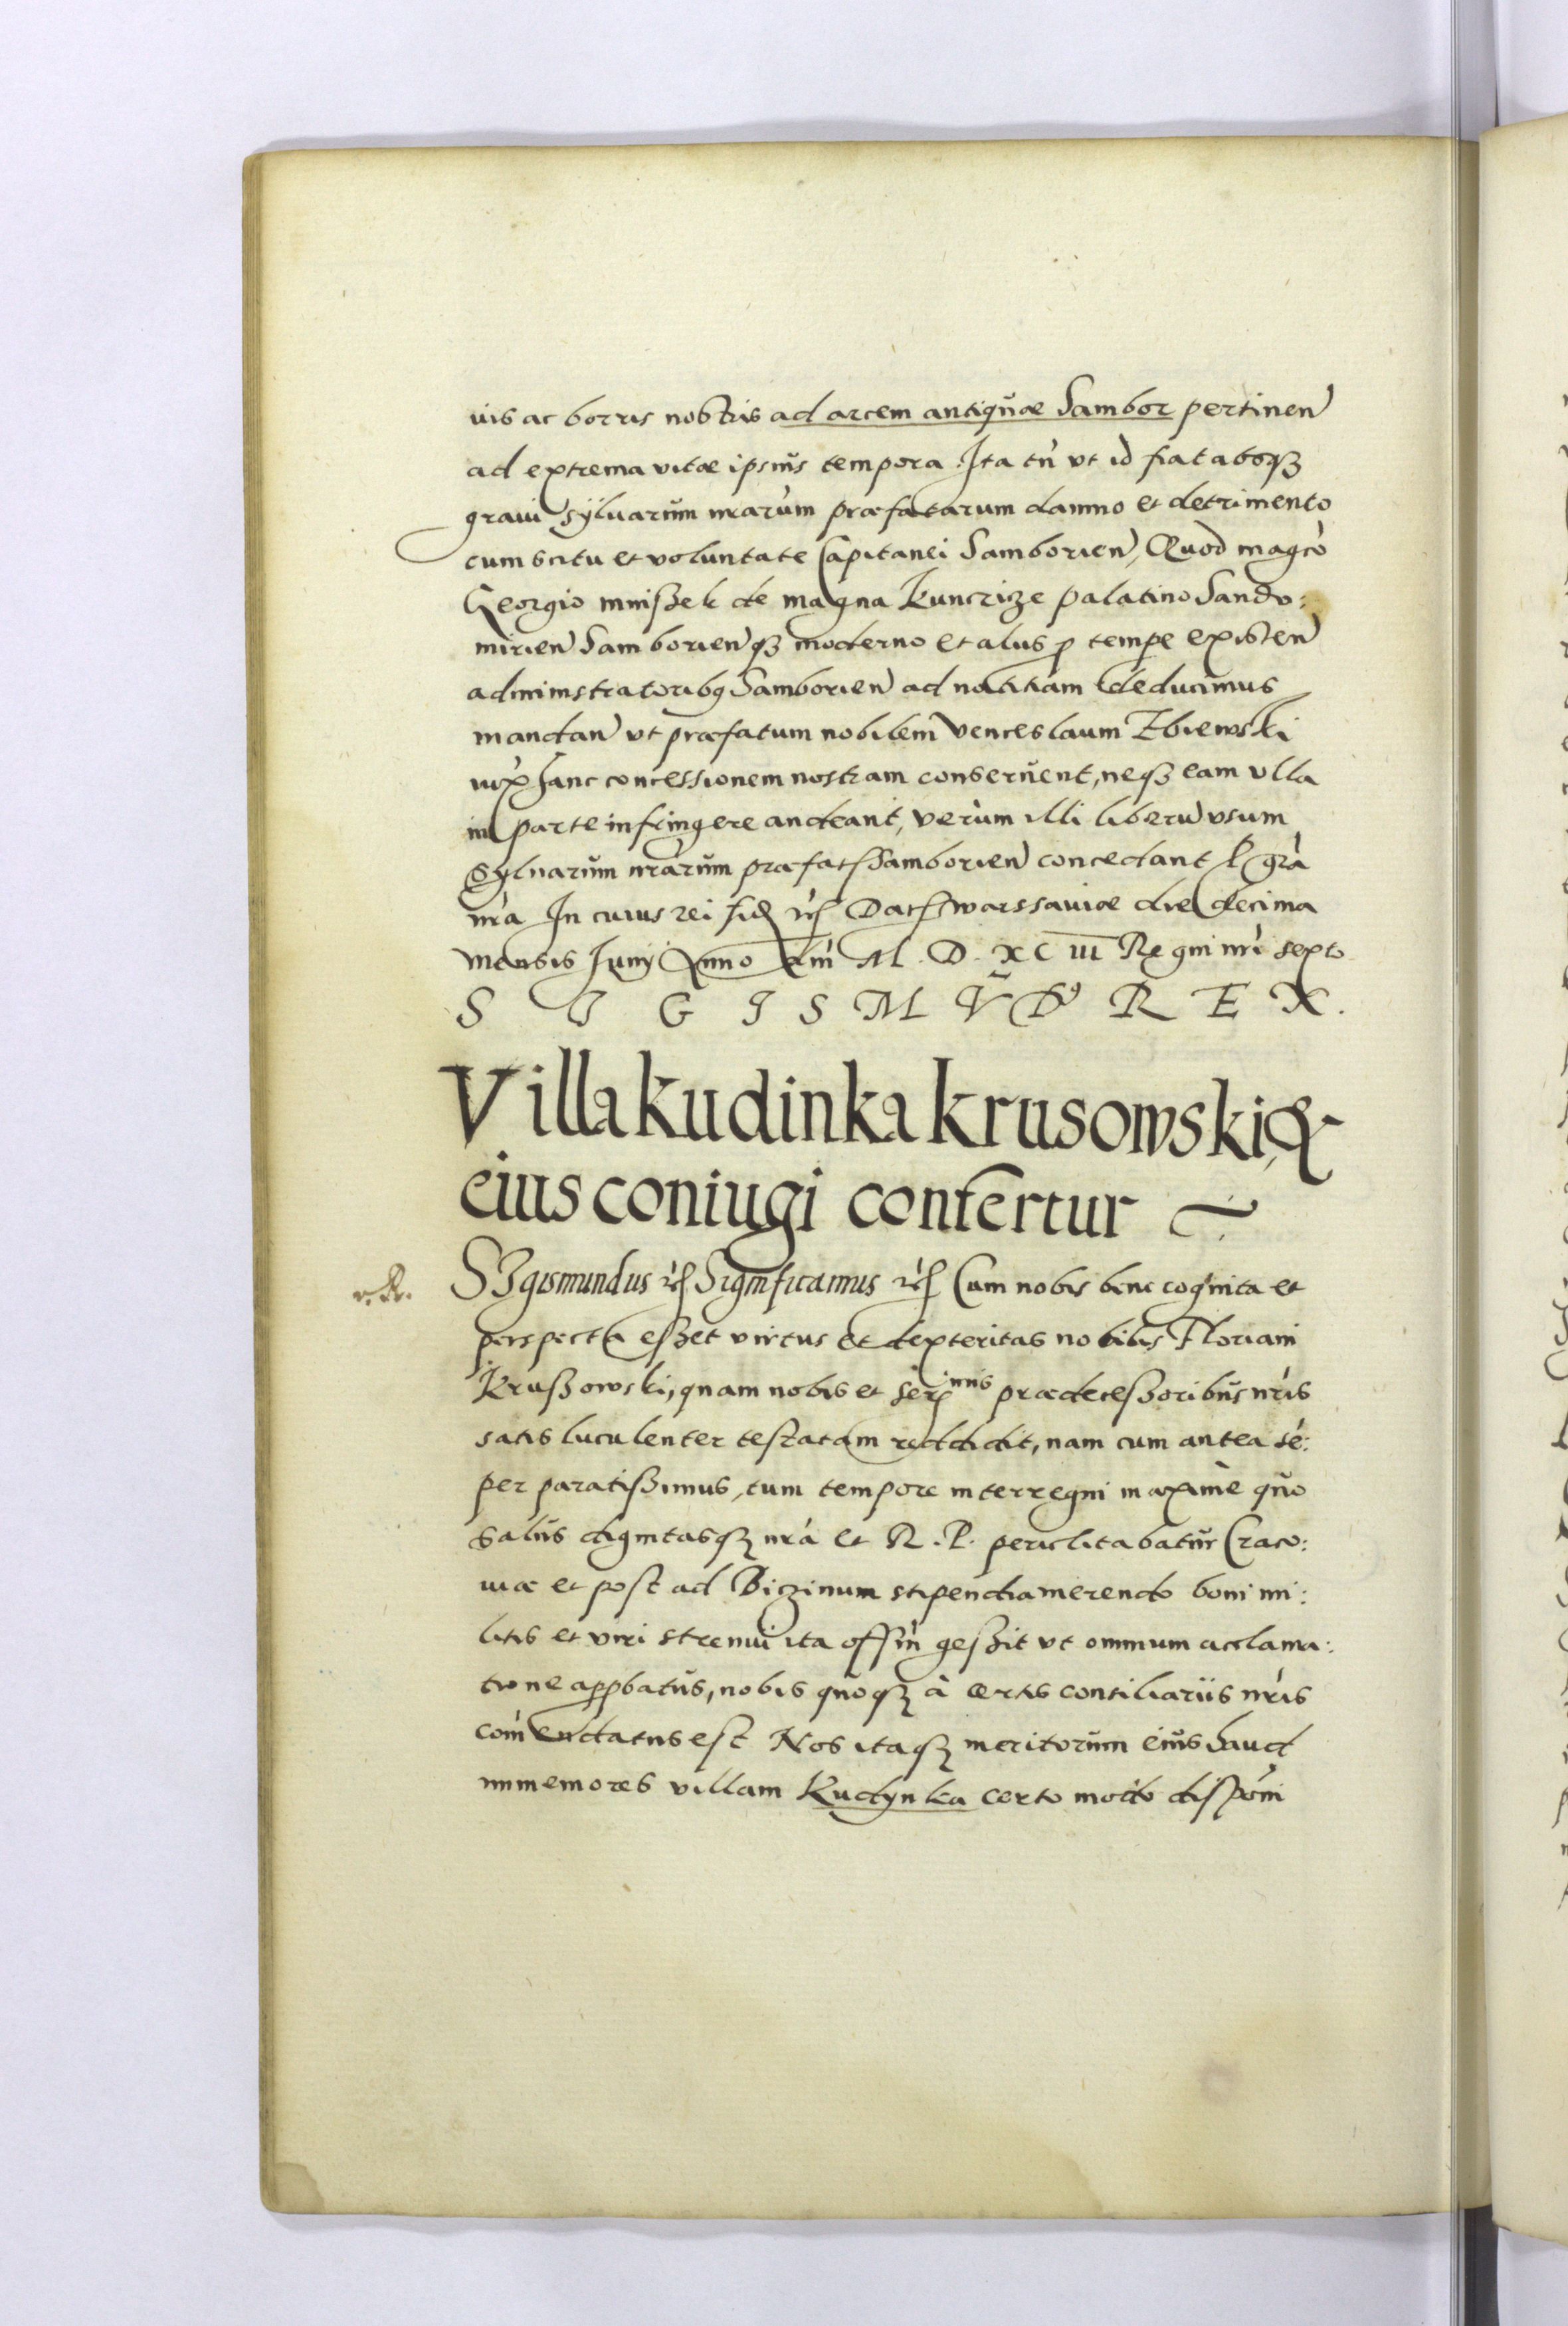 uis ac borris nostris ad arcem antiquae Sambor pertinen
ad extrema vitae ipsius tempora. Ita tñ vt id fiat absqȝ
graui syluarum nrarum praefatarum damno et detrimento
cum scitu et voluntate Capitanei Samborien, Quod magco
Georgio mnisßek de magna Kuncrize palatino Sando:
mirien Samborienqȝ moderno et alijs p tempe existen
administratoribȝ Samborien ad notitiam deducimus
mandan vt praefatum nobilem venceslaum
iuxa hanc concessionem nostram conseruent, neqȝ eam vlla
in parte infringere audeant, verum illi liberu vsum
Syluarum nrarum praefat Samborien concedant P gra
nra In cuius rei fid etc Dat warssauiae die decima
mensis Junij Anno dni M. D. XC III Regni nri sexto
S I G I S M Ṽ D R E X.
Villa kudinka krusowski &
eius coniugi confertur ~
r. R.
SIgismundus etc Significamus etc Cum nobis bene cognita et
perspecta esset virtus et dexteritas nobilis Floriani
Krußowski, quam nobis et Ser mis praedecessoribus nris
satis luculenter testatam reddidit, nam cum antea sé:
per paratißimus, tum tempore interregni maxime quo
salus dignitasqȝ nra et R. P. periclitabatur Craco:
uiae et post ad Biczinum stipendia merendo boni mi:
litis et viri strenui ita offin geßit vt omnium acclama:
tione appbatus, nobis quoqȝ à certis consiliariis nris
comendatus est Nos itaqȝ meritorum eius haud
immemores villam Kudynka certo modo disponi